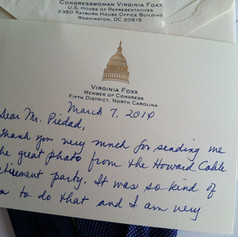 CONGRESSWOMAN VIRGINIA FOXX
U.S. HOUSE OF REPRESENTATIVES
2350 RAYBURN HOUSE OFFICE BUILDING
WASHINGTON, DC 20515
VIRGINIA FOXX
MEMBER OF CONGRESS
FIFTH DISTRICT, NORTH CAROLINA
March 7, 2014
Dear Mr. Piedad,
Thank you very much for sending me
the great photo from the Howard Coble
party. It was so kind of
to do that and I am very